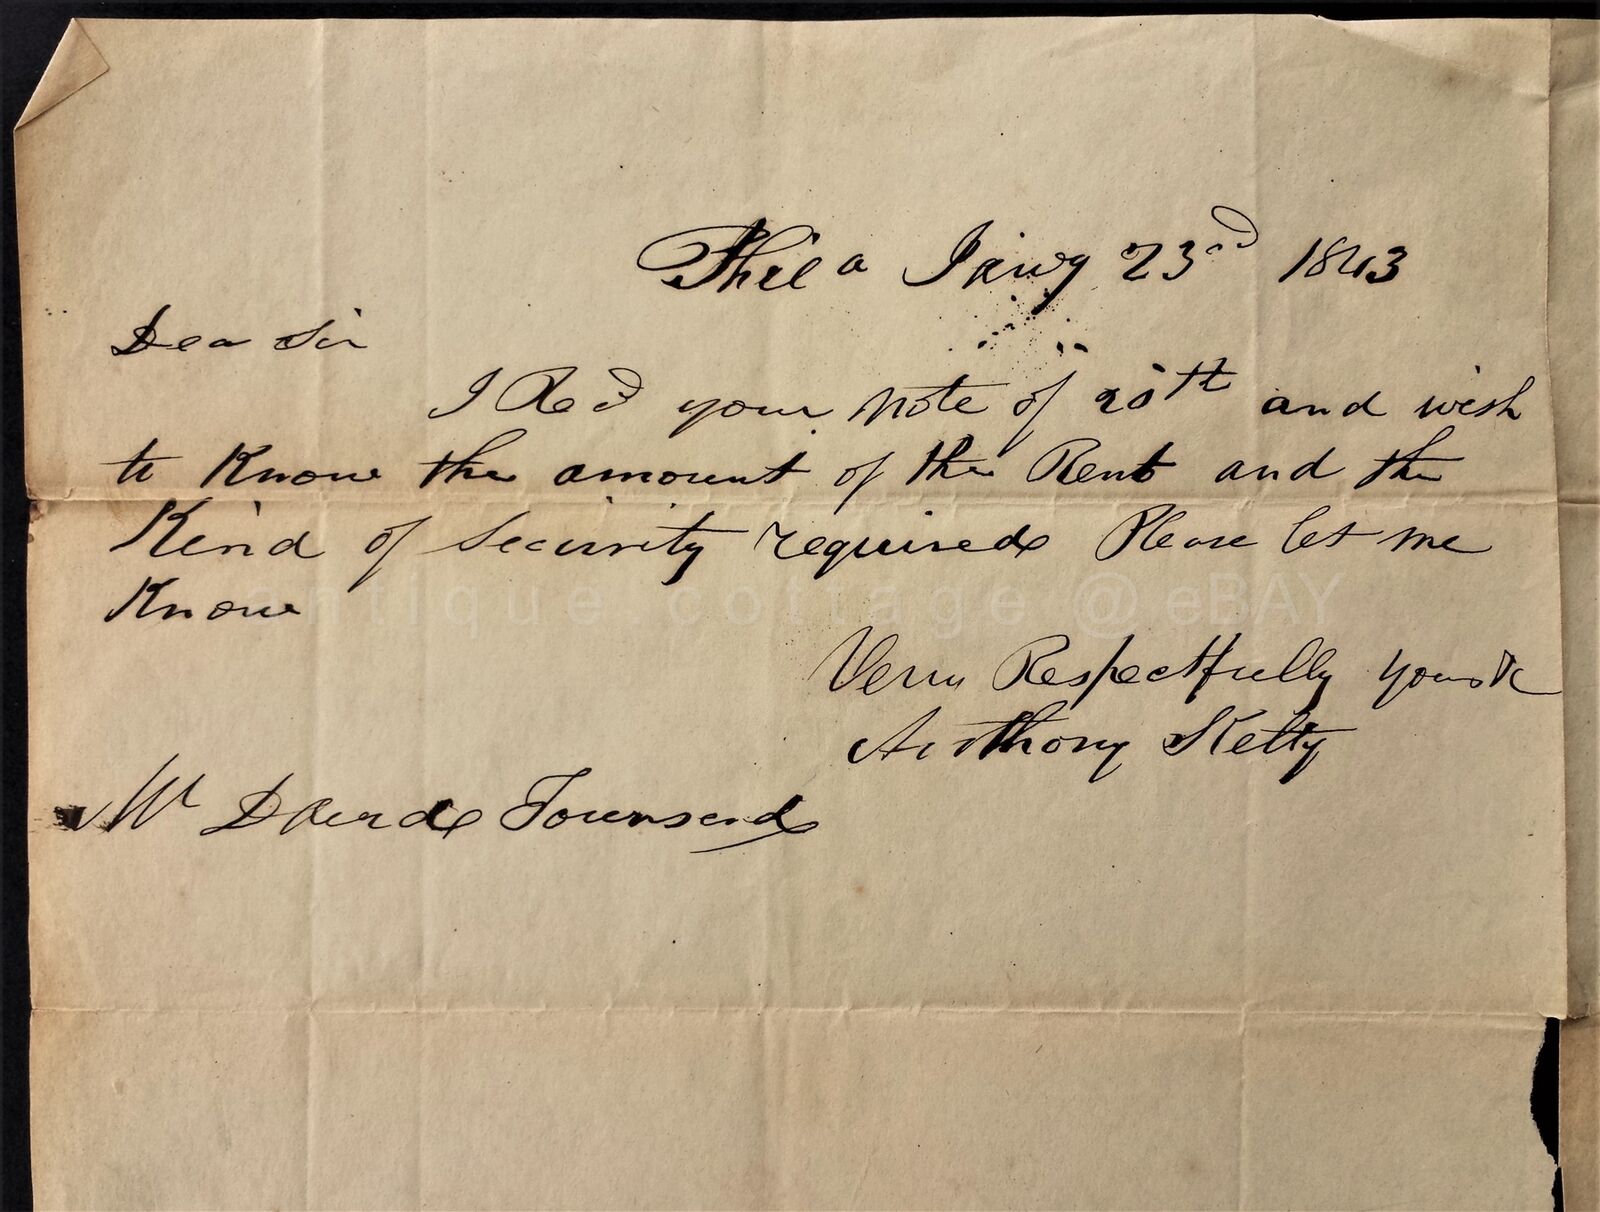 Phila Jany 23rd 1843
Dea Sir
I Recd your note of 20th and wish
to Know the amount of the Rent and the
Kind of Security required Please let me
Know
antique.cottage @ eBAY
Very Respectfully yours &c
Anthony Kelty
Mr David Townsend